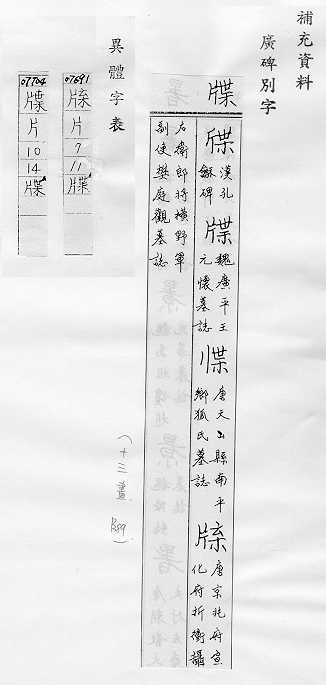 補充資料
廣碑別字
牒
牒 漢孔龢碑 牒 魏廣平王元懷墓誌 牒 唐天山縣南平鄉狐氏墓誌 牒 唐京兆府宣化府折衝攝
右衛郎將橫野軍副使樊庭觀墓誌
(十三畫 B59)
異體字表
07691
片
7
11
牒
07704
牒
片
10
14
牒